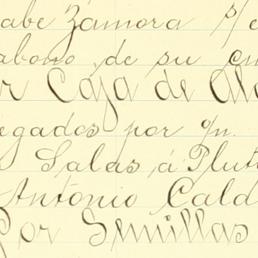 abe Zamora p/c
abono de su cu
r Caja de Al
egados por o/n.
Salas á Plut
Antonio Cald
Por Semillas